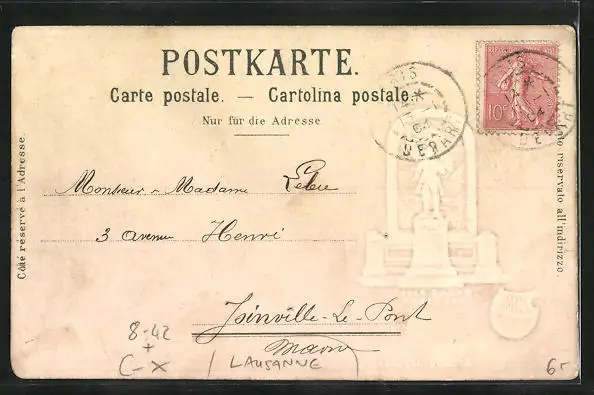 POSTKARTE.
Carte postale. — Cartolina postale.
Nur für die Adresse
Côté réservé à l'Adresse.
riservato all'indirizzo.
10c
DEPART
04
DEPART
04
Monsieur & Madame
3 avenue Henri
Joinville-Le-Pont
Marne
8-42
+
C-X
(LAUSANNE)
6r